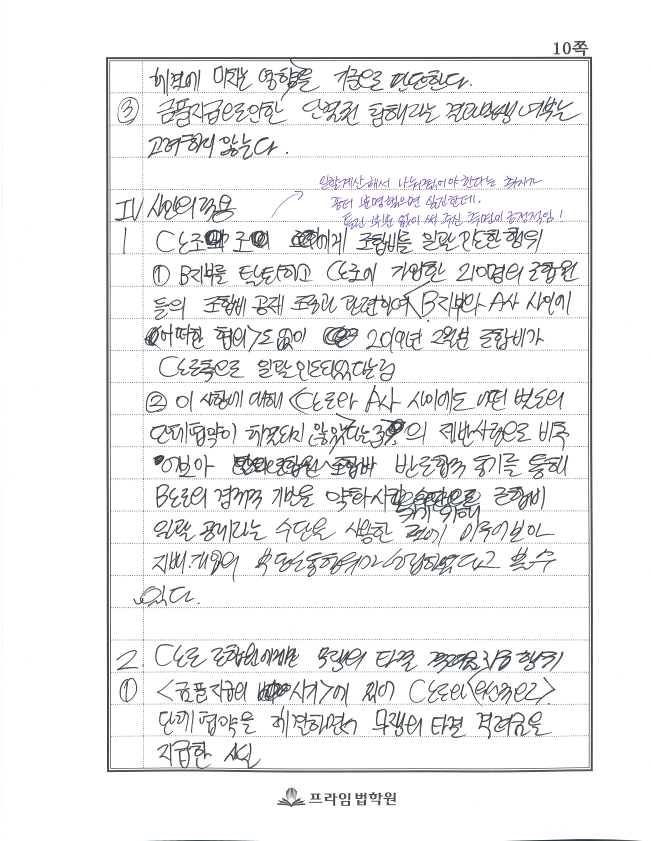 10쪽
해결에 미치는 영향을 기준으로 판단한다.
③ 금품지급으로인한 단결권 침해라는 결과발생 여부는
고려하지 않는다.
일할계산해서 나눠줬어야 한다는 취지가
좀더 분명했으면 싶긴한데.
틀린 부분 없이 써 주신 측면이 긍정적임!
IV 사안의 적용
1 C노조에게 조합비를 일괄 인도한 행위
① B지부를 탈퇴하고 C노조에 가입한 210명의 조합원
들의 조합비 공제 조치와 관련하여 <B지부와 A사 사이에
어떠한 협의>도 없이 2019년 2월분 조합비가
C노조측으로 일괄 인도되었다는점
② 이 상황에 대해 <C노조와 A사 사이에도 어떤 별도의
단체협약이 체결되지 않았다는점>의 제반사정으로 비추
어보아 반조합적 동기를 통해
B노조의 경제적 기반을 약화시키기 위해 조합비
일괄 공제라는 수단을 사용한 것에 이루어보아
지배·개입의 부당노동행위가 성립하였다고 볼 수
있다.
2. C노조 조합원에게만 무쟁의 타결 격려금 지급 행위
① <금품지급의 시기>에 있어 C노조와 <우선적으로>
단체협약을 체결하면서 무쟁의 타결 격려금을
지급한 사실
프라임법학원